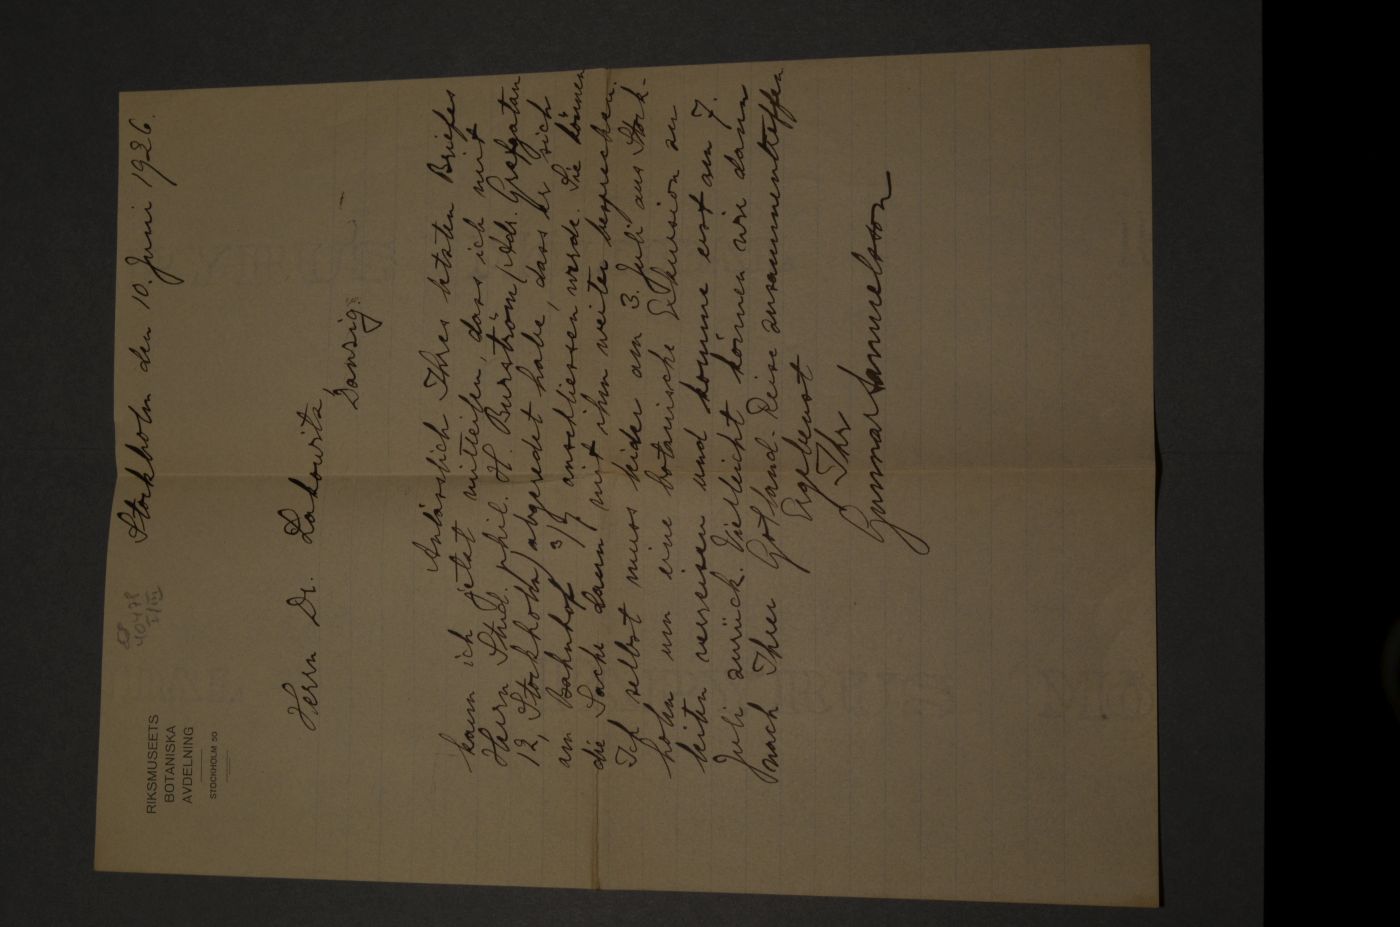 RIKSMUSEETS
BOTANISKA
AVDELNING
STOCKHOLM 50
40478
I/III
Stockholm den 10. Juni 1926.
Herrn Dr. Lakowitz
Danzig.
Anlässlich Ihres letzten Briefes
kann ich jetzt mitteilen, dass ich mit
Herrn Stud. phil. H. Burström (Adr. Grefgatan
12, Stockholm) abgeredet habe, dass er sich
am Bahnhof 3/7 anschliessen werde. Sie können
die Sache dann mit ihm weiter besprechen.
Ich selbst muss leider am 3. Juli aus Stock-
holm um eine botanische Exkursion zu
leiten verreisen und komme erst am 7.
Juli zurück. Vielleicht können wir dann
nach Ihrer Gotland-Reise zusammentreffen
Ergebenst
Ihr
Gunnar Samuelsson